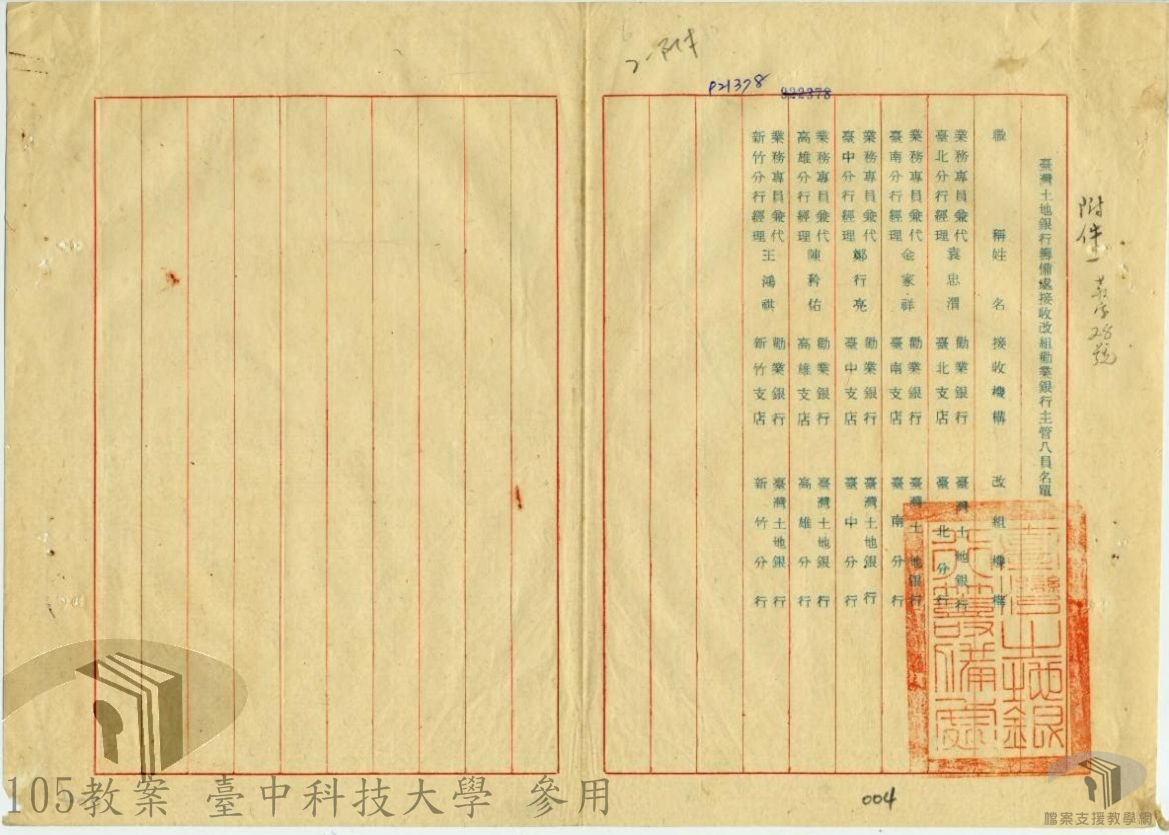 二-附件
P21378
922378
附件一
28號
臺灣土地銀行籌備處接收改組勸業銀行主管人員名單
職稱 姓名 接收機構 改組機構
業務專員兼代臺北分行經理 袁忠渭 勸業銀行臺北支店 臺灣土地銀行臺北分行
業務專員兼代臺南分行經理 金家祥 勸業銀行臺南支店 臺灣土地銀行臺南分行
業務專員兼代臺中分行經理 鄭行亮 勸業銀行臺中支店 臺灣土地銀行臺中分行
業務專員兼代高雄分行經理 陳矜佑 勸業銀行高雄支店 臺灣土地銀行高雄分行
業務專員兼代新竹分行經理 王鴻祺 勸業銀行新竹支店 臺灣土地銀行新竹分行
臺灣土地銀行籌備處
004
105教案 臺中科技大學 參用
檔案支援教學網